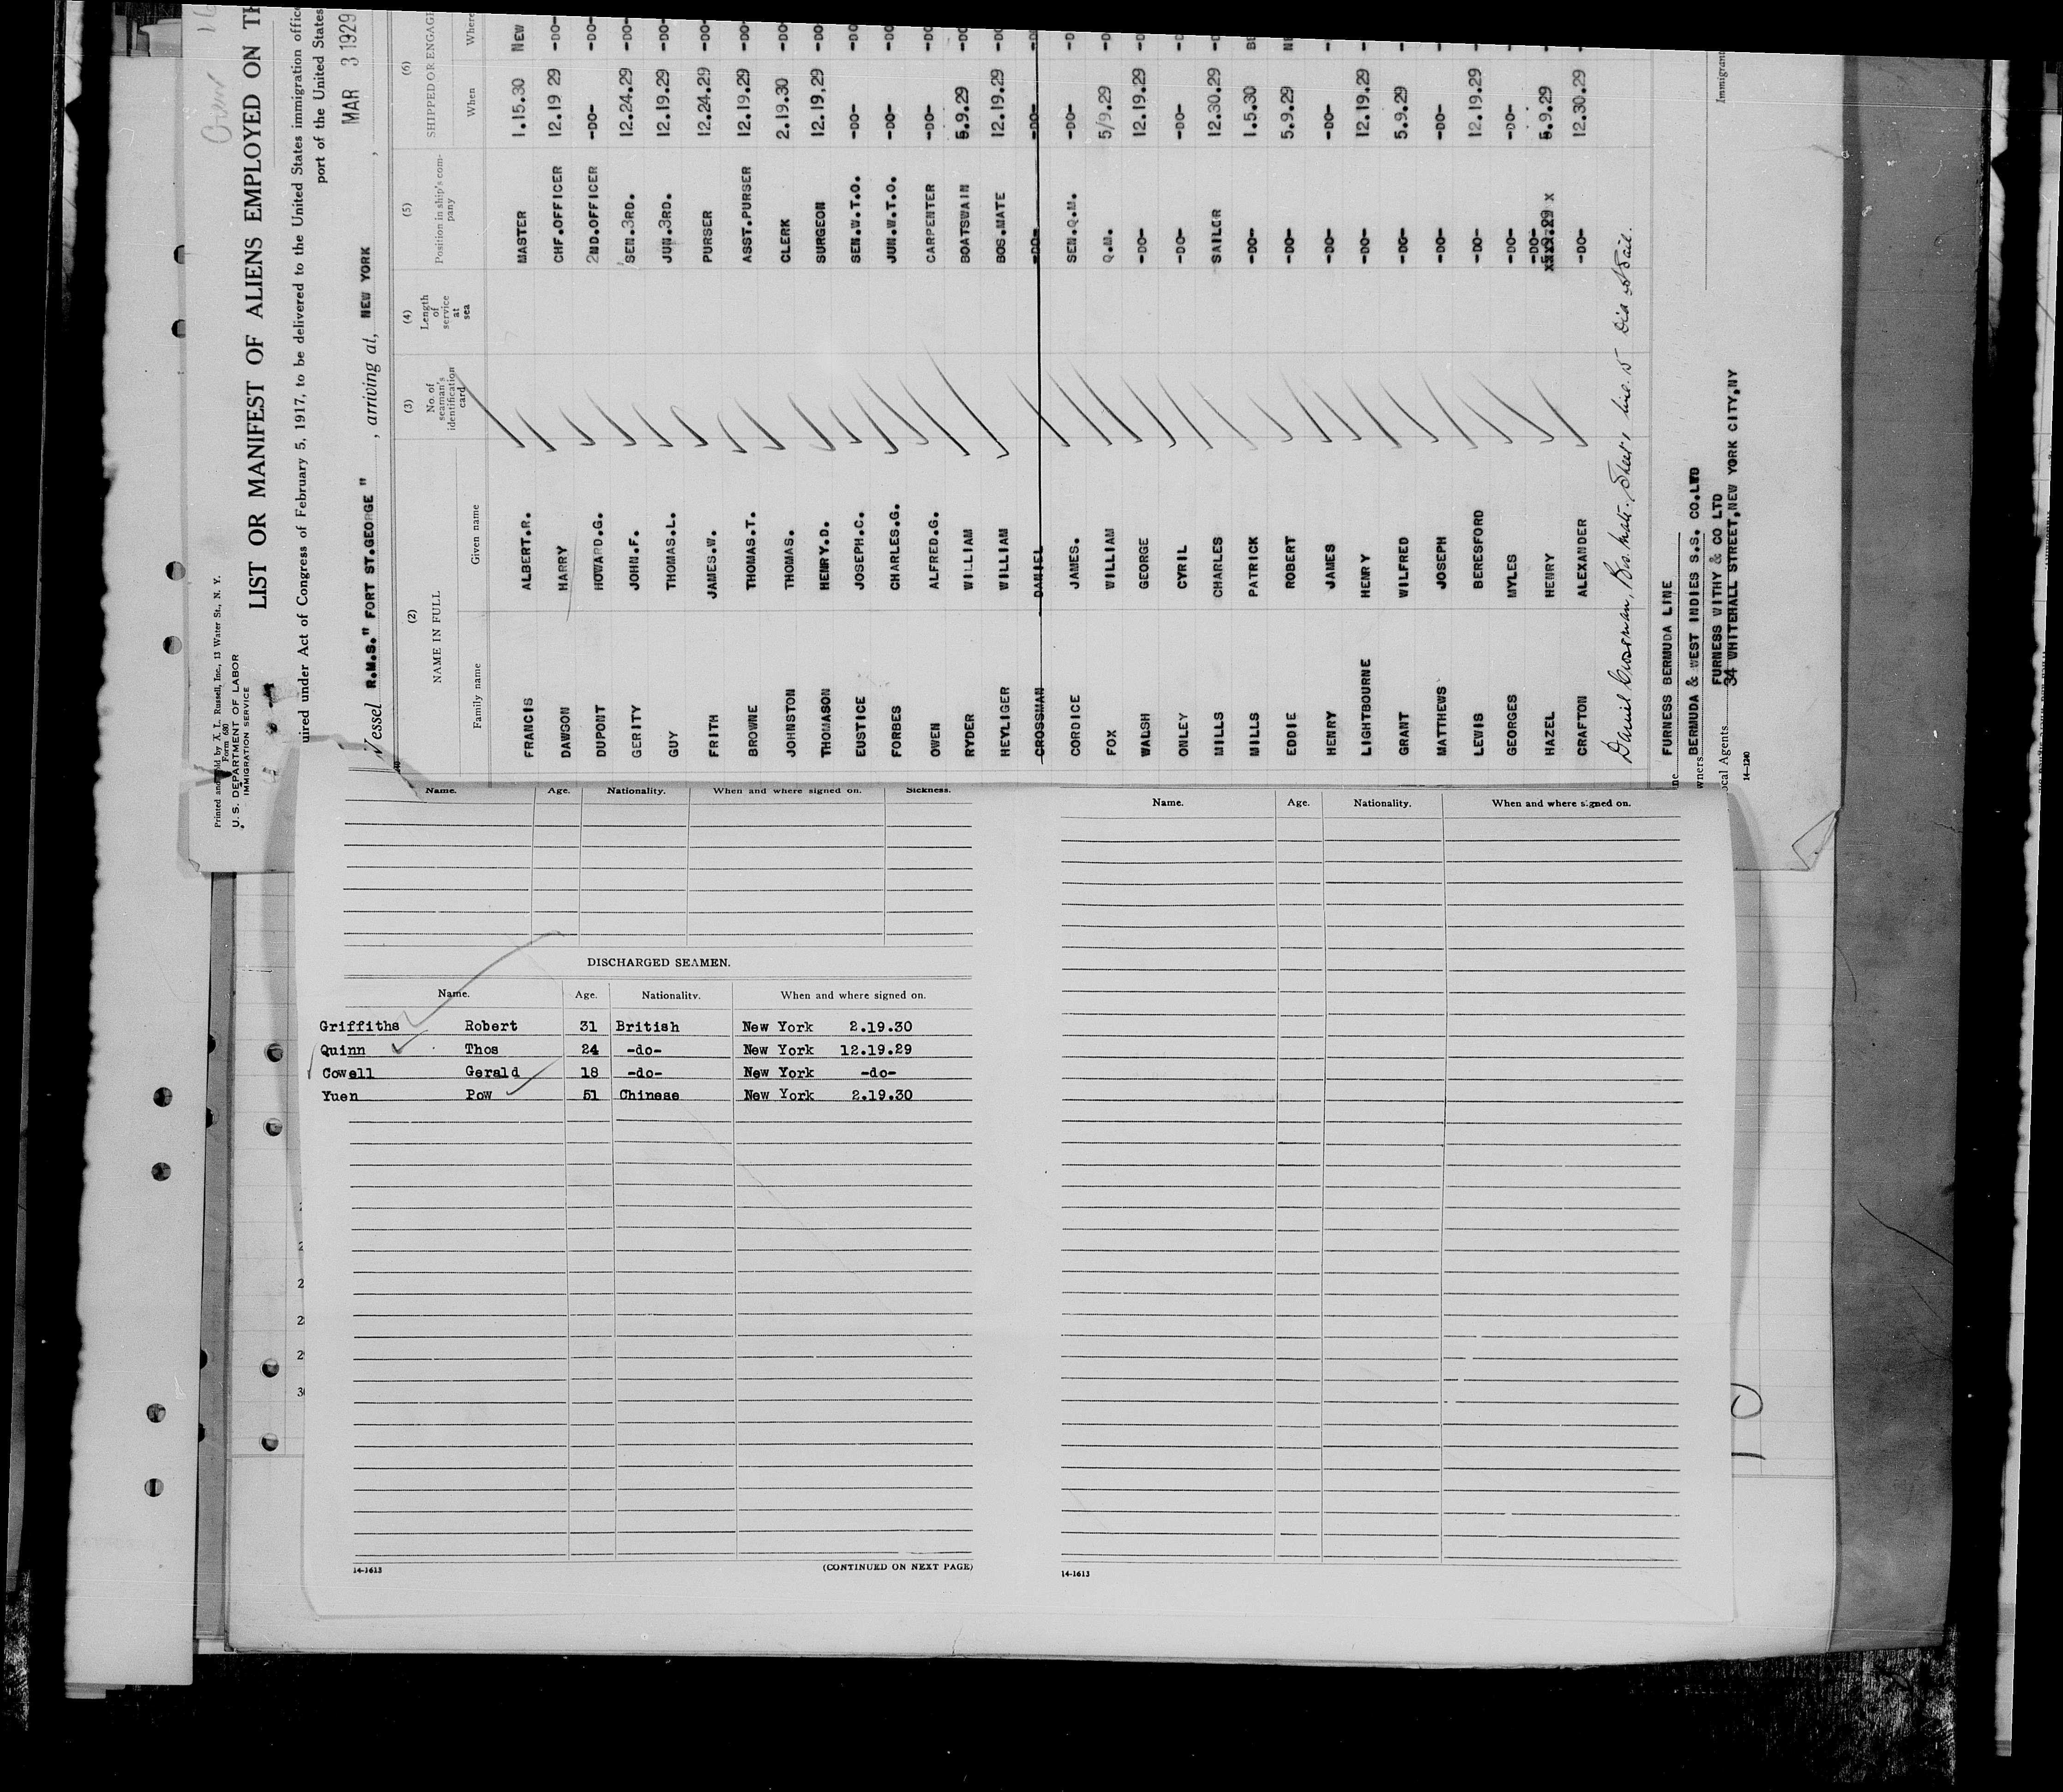 Printed and Sold by A. L. Russell, Inc., 13 Water St., N. Y.
Form 680
U. S. DEPARTMENT OF LABOR
IMMIGRATION SERVICE
LIST OR MANIFEST OF ALIENS EMPLOYED ON
uired under Act of Congress of February 5, 1917, to be delivered to the United States immigration offic
port of the United States
Vessel R.M.S." FORT ST.GEORGE " , arriving at, NEW YORK , MAR 3 1929
(2) (3) (4) (5) (6)
NAME IN FULL No. of seaman's identification card Length of service at sea Position in ship's company SHIPPED OR ENGAG
Family name Given name When Where
FRANCIS ALBERT.R. MASTER 1.15.30 NEW
DAWSON HARRY CHF.OFFICER 12.19 29 -DO-
DUPONT HOWARD.G. 2ND.OFFICER -DO- -DO-
GERITY JOHN.F. SEN.3RD. 12.24.29 -DO-
GUY THOMAS.L. JUN.3RD. 12.19.29 -DO-
FRITH JAMES.W. PURSER 12.24.29 -DO-
BROWNE THOMAS.T. ASST.PURSER 12.19.29 -DO-
JOHNSTON THOMAS. CLERK 2.19.30 -DO
THOMASON HENRY.D. SURGEON 12.19.29 -DO
EUSTICE JOSEPH.C. SEN.W.T.O. -DO- -DO
FORBES CHARLES.G. JUN.W.T.O. -DO- -DO
OWEN ALFRED.G. CARPENTER -DO- -DO
RYDER WILLIAM BOATSWAIN 5.9.29 -DO
HEYLIGER WILLIAM BOS.MATE 12.19.29 -DO
CROSSMAN DANIEL -DO- -DO- -DO
CORDICE JAMES. SEN.Q.M. -DO- -D
FOX WILLIAM Q.M. 5/9.29 -D
WALSH GEORGE -DO- 12.19.29 -D
ONLEY CYRIL -DO- -DO- -D
MILLS CHARLES SAILOR 12.30.29 -D
MILLS PATRICK -DO- 1.5.30 BE
EDDIE ROBERT -DO- 5.9.29 NE
HENRY JAMES -DO- -DO- -
LIGHTBOURNE HENRY -DO- 12.19.29 -
GRANT WILFRED -DO- 5.9.29 -
MATTHEWS JOSEPH -DO- -DO- -
LEWIS BERESFORD -DO- 12.19.29 -
GEORGES MYLES -DO- -DO- -
HAZEL HENRY -DO- 5.9.29 -
CRAFTON ALEXANDER -DO- 12.30.29 -
Daniel Crossman, Bos. Mate. Sheet 1 line 15 Did Not Sail.
ne FURNESS BERMUDA LINE
wners BERMUDA & WEST INDIES S.S. CO.LTD
FURNESS WITHY & CO LTD
ocal Agents 34 WHITEHALL STREET,NEW YORK CITY,NY
Immigran
14-1240
Name. Age. Nationality. When and where signed on. Sickness.
DISCHARGED SEAMEN.
Name. Age. Nationality. When and where signed on.
Griffiths Robert 31 British New York 2.19.30
Quinn Thos 24 -do- New York 12.19.29
Cowell Gerald 18 -do- New York -do-
Yuen Pow 51 Chinese New York 2.19.30
14-1613 (CONTINUED ON NEXT PAGE)
Name. Age. Nationality. When and where signed on.
14-1613